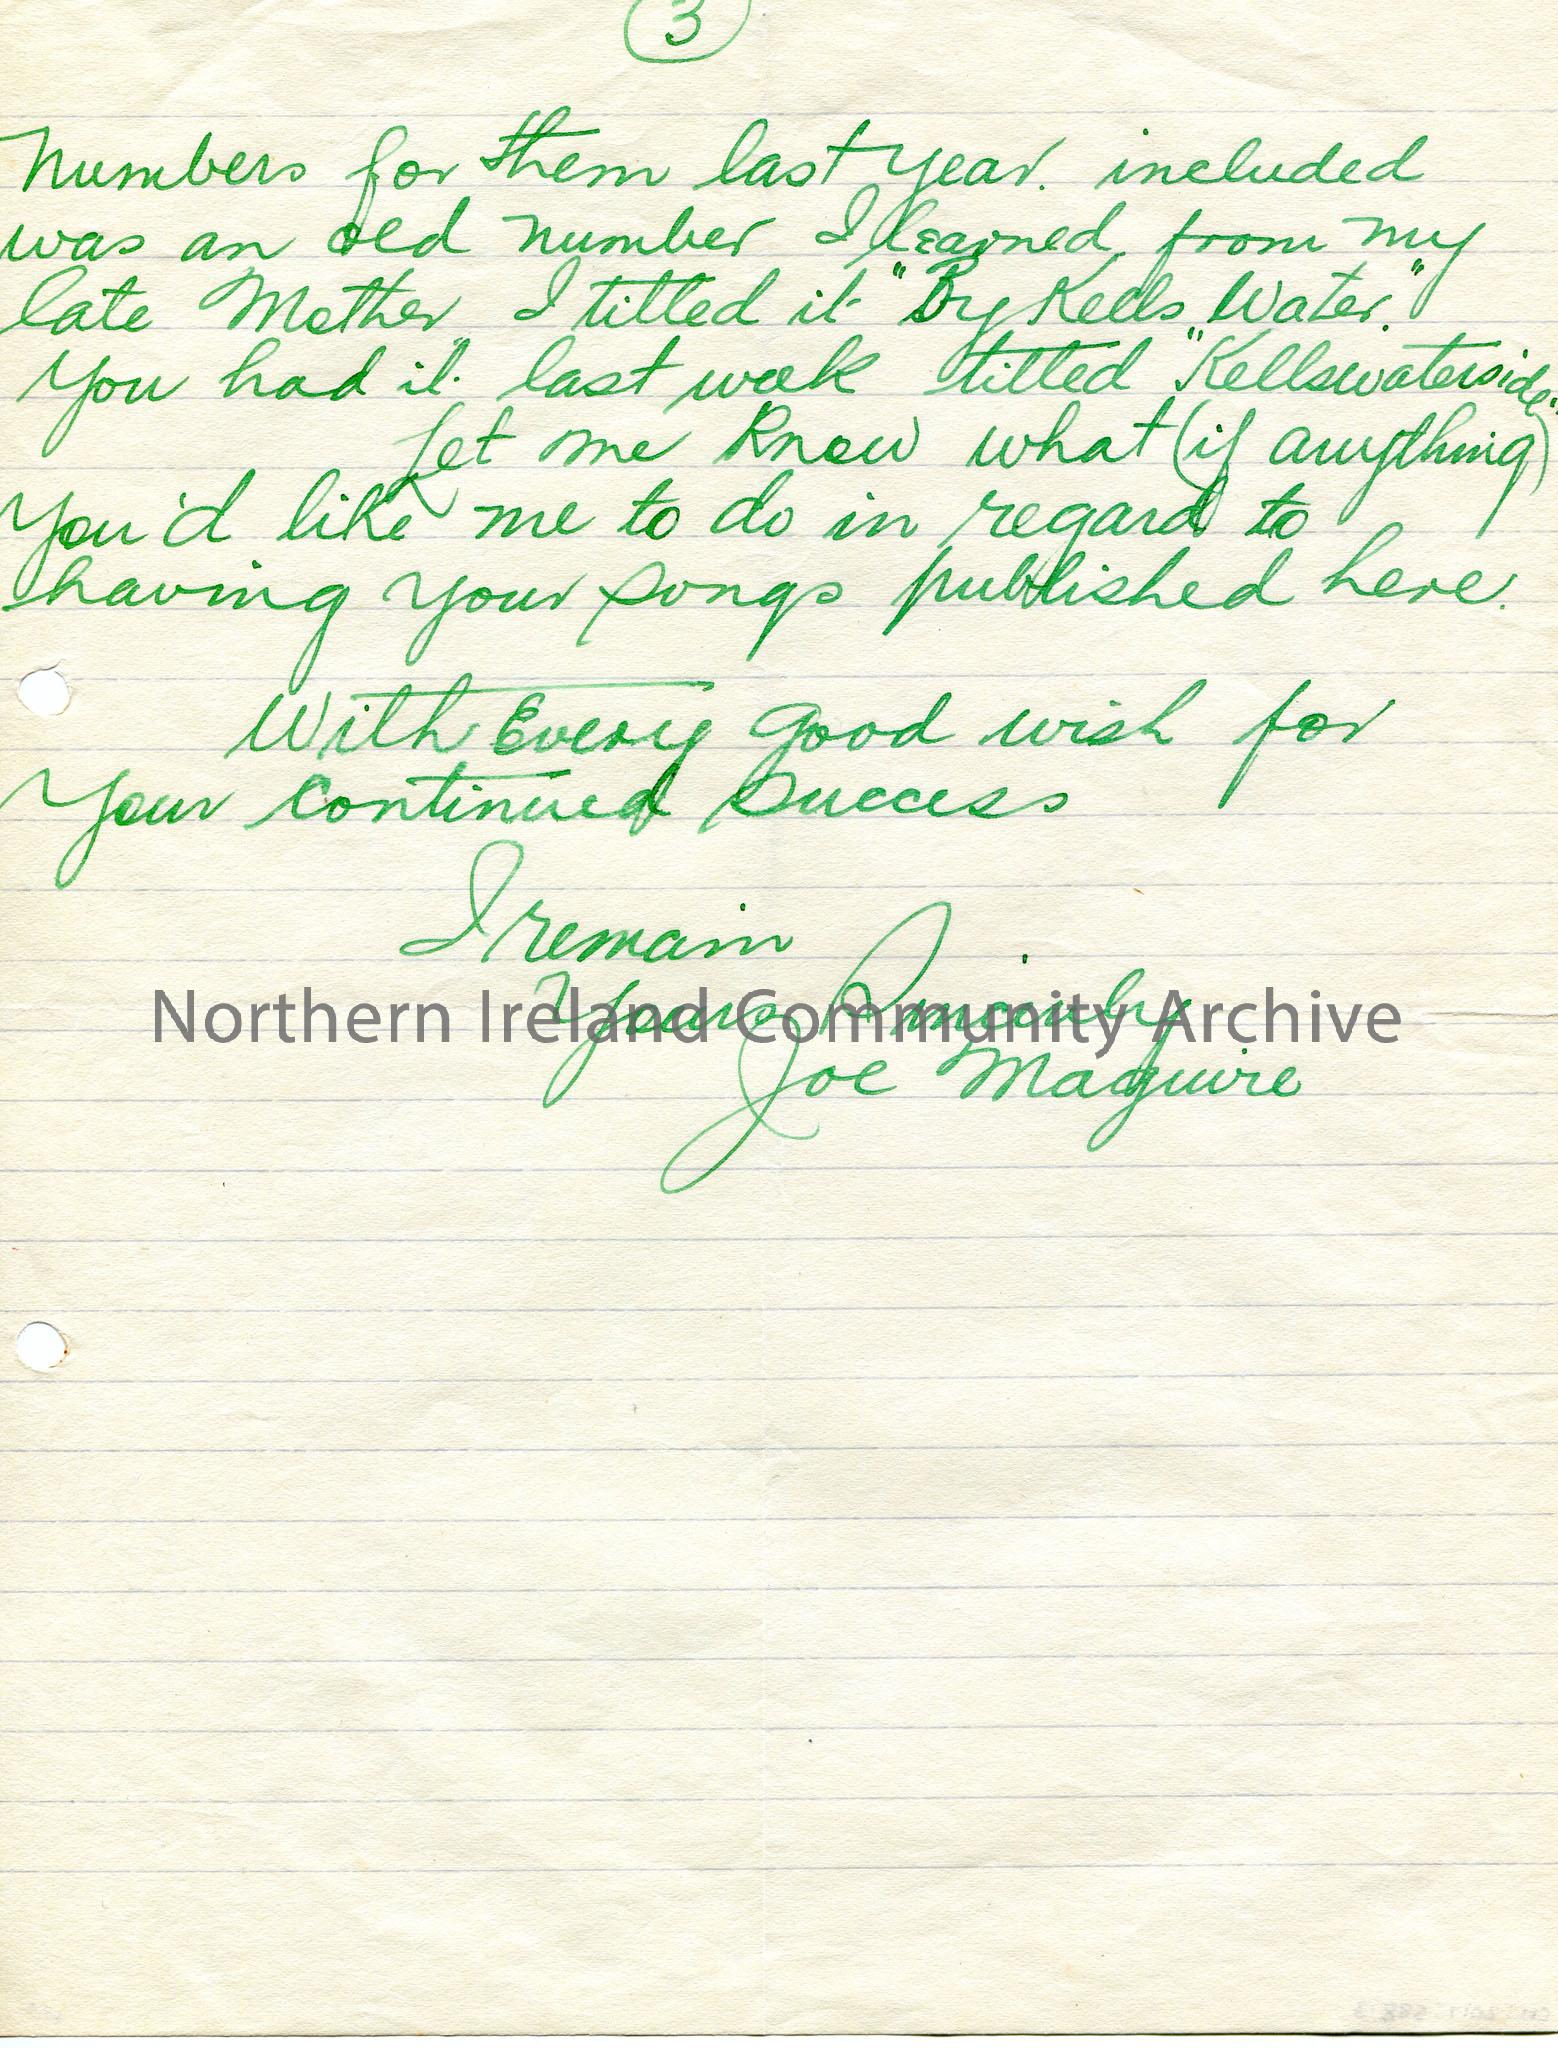 3
Numbers for them last year. included
was an old number I learned from my
late Mother I titled it "By Kells Water."
You had it last week titled "Kellswaterside"
Let me know what (if anything)
You'd like me to do in regard to
having your songs published here.
With Every good wish for
Your continued success
I remain
Yours Sincerely
Northern Ireland Community Archive
Joe Maguire